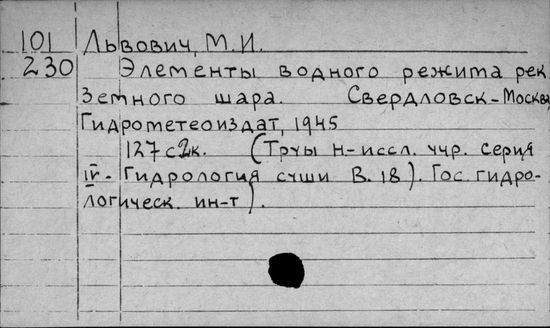 101 Львович, М.И.
230 Элементы водного режима рек
Земного шара. Свердловск-Москва,
Гидрометеоиздат, 1945
127 с 2к. (Труы Н-иссл. учр. серия
IV - Гидрология сиши В. 18). Гос. гидро-
логическ. ин-т).